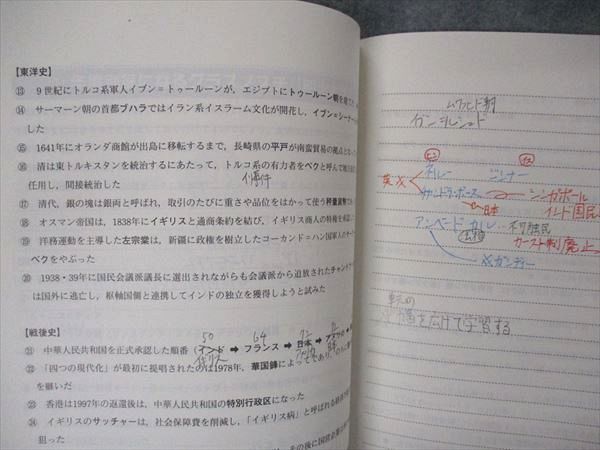 【東洋史】
⑬ 9世紀にトルコ系軍人イブン＝トゥールーンが，エジプトにトゥールーン朝を建て
⑭ サーマーン朝の首都ブハラではイラン系イスラーム文化が開花し，イブン＝シーナー
した
⑮ 1641年にオランダ商館が出島に移転するまで，長崎県の平戸が南蛮貿易の拠点と
⑯ 清は東トルキスタンを統治するにあたって，トルコ系の有力者をベクと呼んで
任用し，間接統治した
⑰ 清代，銀の塊は銀両と呼ばれ，取引のたびに重さや品位をはかって使う秤量貨幣
⑱ オスマン帝国は，1838年にイギリスと通商条約を結び，イギリス商人の特権を承認
⑲ 洋務運動を主導した左宗棠は，新疆に政権を樹立したコーカンド＝ハン国軍人の
ベクをやぶった
⑳ 1938・39年に国民会議派議長に選出されながらも会議派から追放されたチャンドラ
は国外に逃亡し，枢軸国側と連携してインドの独立を獲得しようと試みた
【戦後史】
50 64 72
㉑ 中華人民共和国を正式承認した順番（インド ➡ フランス ➡ 日本 ➡
イギリス
㉒ 「四つの現代化」が最初に提唱されたのは1978年，華国鋒によってであり，
を継いだ
㉓ 香港は1997年の返還後は，中華人民共和国の特別行政区になった
㉔ イギリスのサッチャーは，社会保障費を削減し，「イギリス病」と呼ばれる
狙った
ネルー ジンナー
英 チャンドラ・ボース シンガポール
日本 インド国民
アンベードカル 不可触民
カースト制廃止
ガンディー
幅を広げて学習する